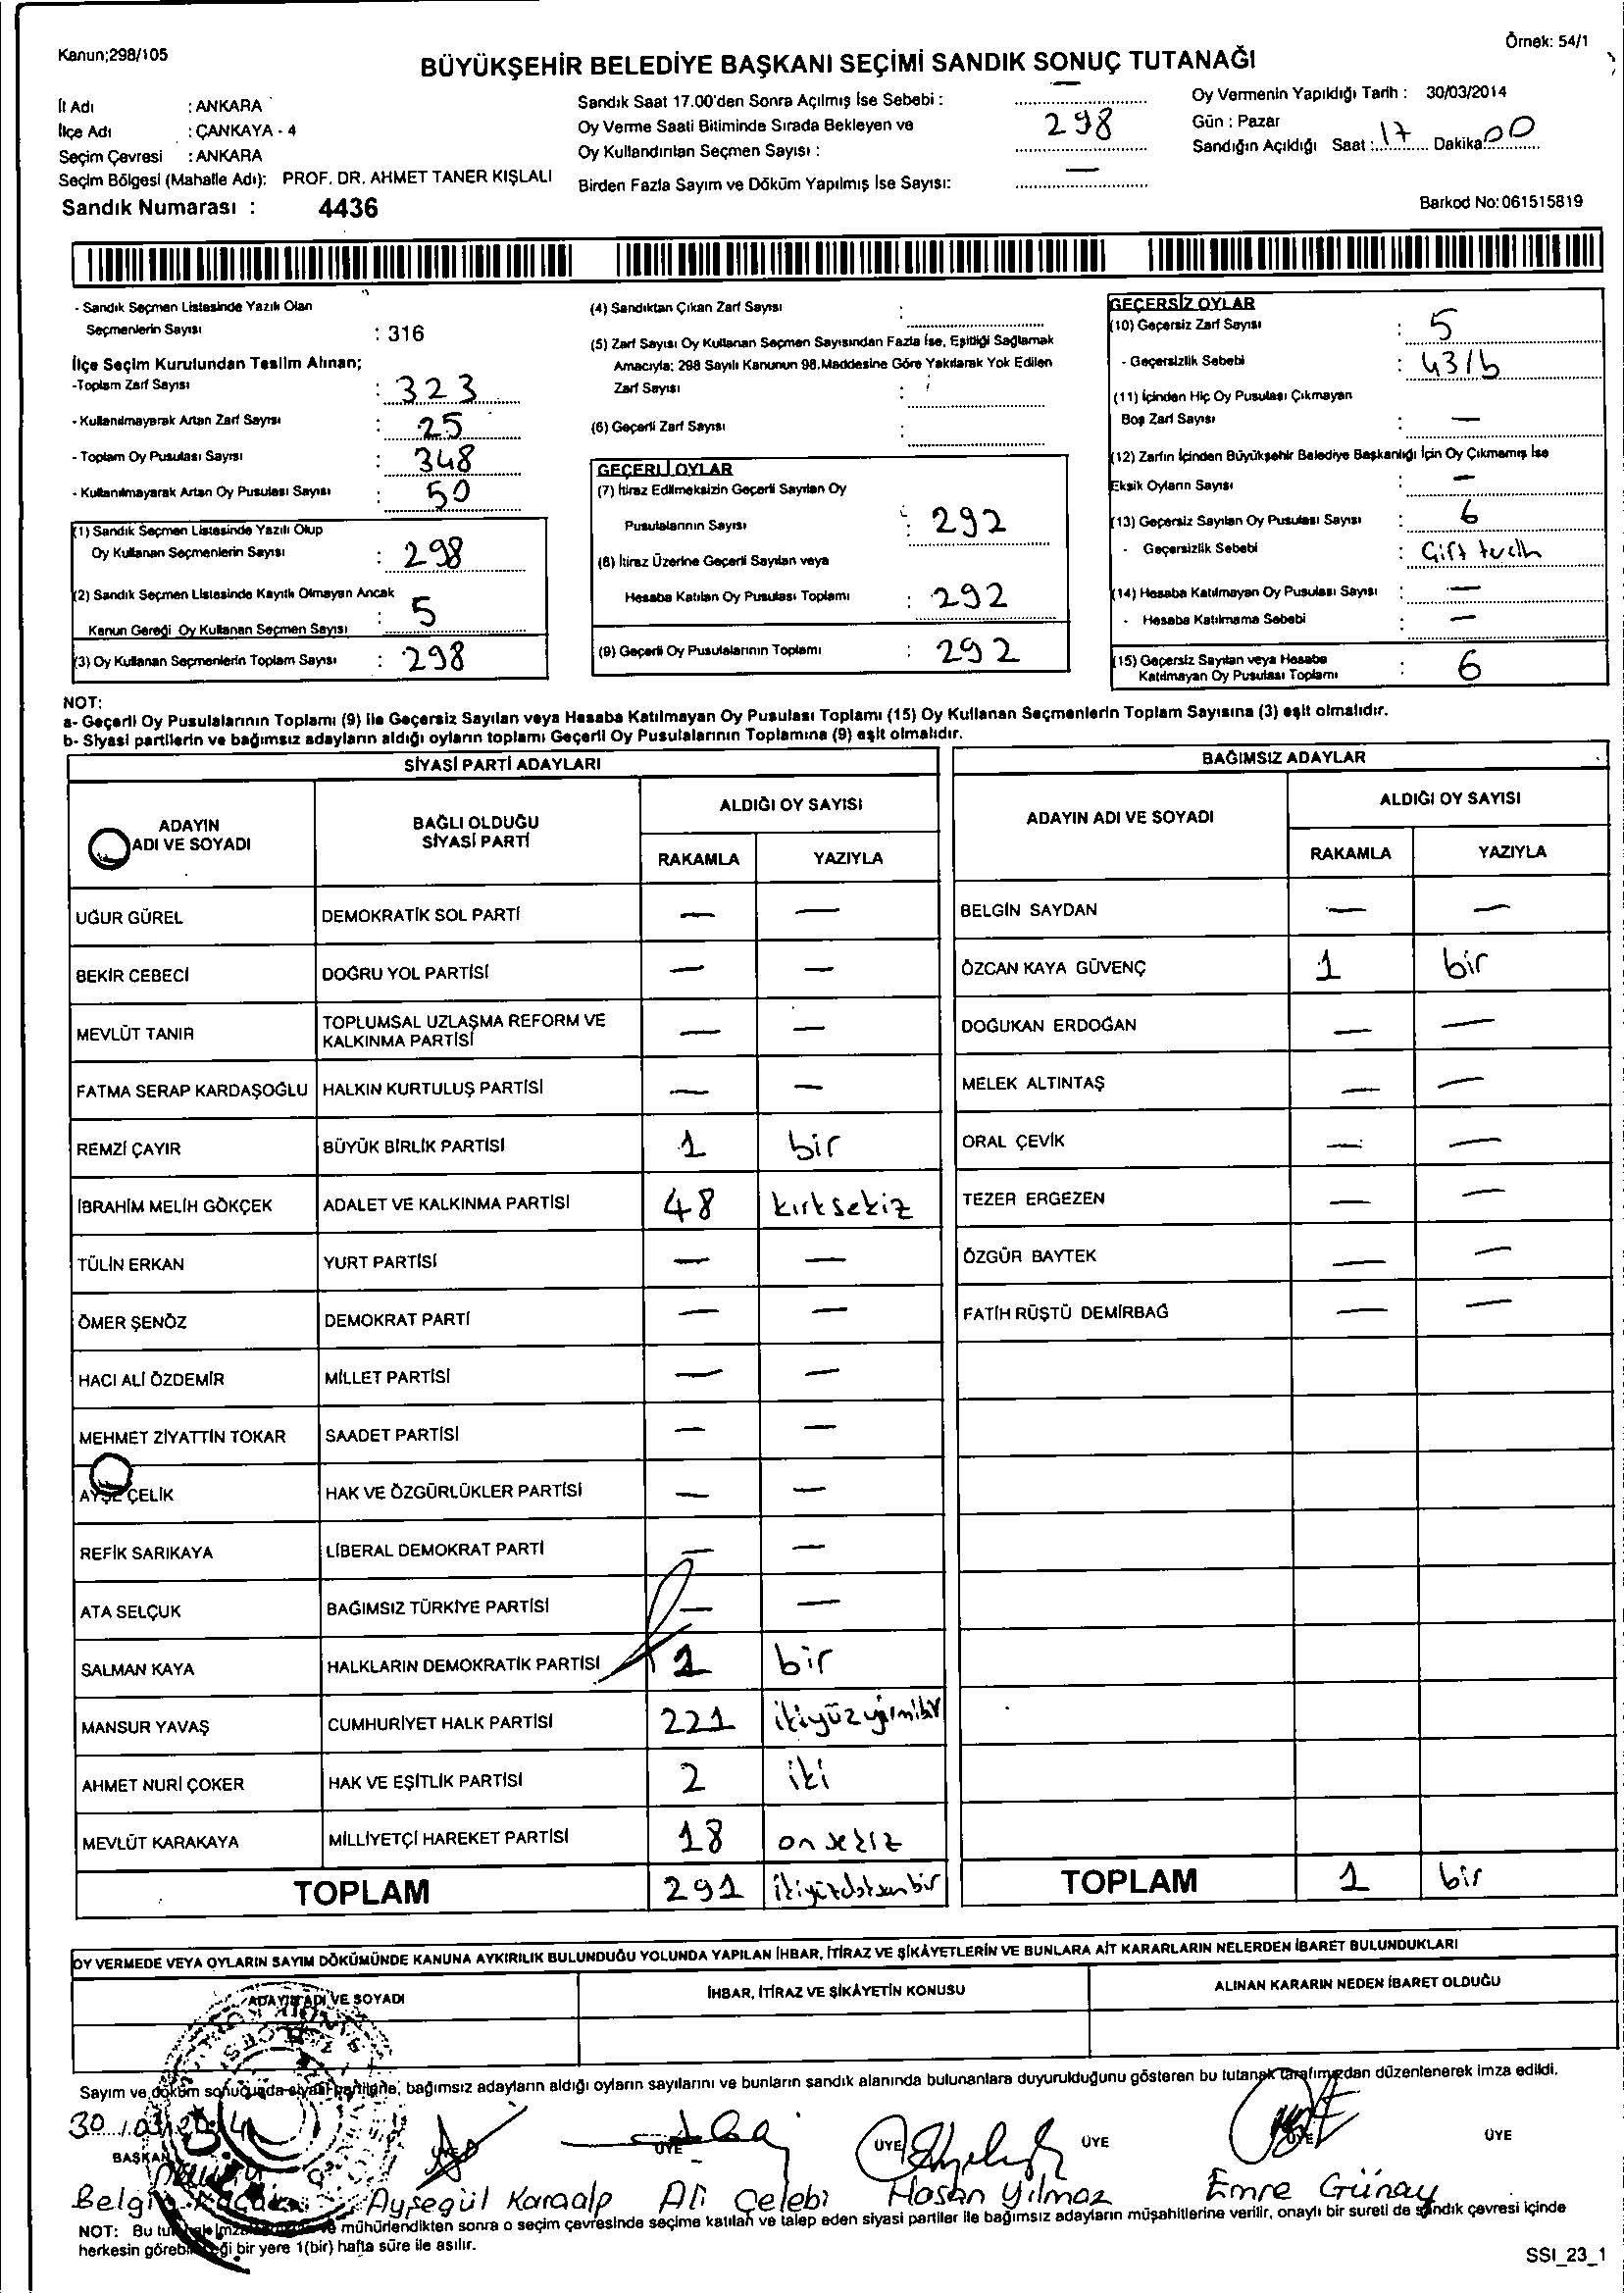 Kanun;298/105
Örnek: 54/1
BÜYÜKŞEHİR BELEDİYE BAŞKANI SEÇİMİ SANDIK SONUÇ TUTANAĞI
İl Adı : ANKARA
İlçe Adı : ÇANKAYA - 4
Seçim Çevresi : ANKARA
Seçim Bölgesi (Mahalle Adı): PROF. DR. AHMET TANER KIŞLALI
Sandık Numarası : 4436
Sandık Saat 17.00'den Sonra Açılmış İse Sebebi : —
Oy Verme Saati Bitiminde Sırada Bekleyen ve
Oy Kullandırılan Seçmen Sayısı : 298
Birden Fazla Sayım ve Döküm Yapılmış İse Sayısı: —
Oy Vermenin Yapıldığı Tarih : 30/03/2014
Gün : Pazar
Sandığın Açıldığı Saat : 17 Dakika 00
Barkod No:061515819
- Sandık Seçmen Listesinde Yazılı Olan
Seçmenlerin Sayısı : 316
İlçe Seçim Kurulundan Teslim Alınan;
-Toplam Zarf Sayısı : 323
- Kullanılmayarak Artan Zarf Sayısı : 25
- Toplam Oy Pusulası Sayısı : 348
- Kullanılmayarak Artan Oy Pusulası Sayısı : 50
(1) Sandık Seçmen Listesinde Yazılı Olup
Oy Kullanan Seçmenlerin Sayısı : 298
(2) Sandık Seçmen Listesinde Kayıtlı Olmayan Ancak
Kanun Gereği Oy Kullanan Seçmen Sayısı : 5
(3) Oy Kullanan Seçmenlerin Toplam Sayısı : 298
(4) Sandıktan Çıkan Zarf Sayısı :
(5) Zarf Sayısı Oy Kullanan Seçmen Sayısından Fazla İse, Eşitliği Sağlamak
Amacıyla; 298 Sayılı Kanunun 98.Maddesine Göre Yakılarak Yok Edilen
Zarf Sayısı :
(6) Geçerli Zarf Sayısı :
GEÇERLİ OYLAR
(7) İtiraz Edilmeksizin Geçerli Sayılan Oy
Pusulalarının Sayısı : 292
(8) İtiraz Üzerine Geçerli Sayılan veya
Hesaba Katılan Oy Pusulası Toplamı : 292
(9) Geçerli Oy Pusulalarının Toplamı : 292
GEÇERSİZ OYLAR
(10) Geçersiz Zarf Sayısı : 5
- Geçersizlik Sebebi : 43/b
(11) İçinden Hiç Oy Pusulası Çıkmayan
Boş Zarf Sayısı : —
(12) Zarfın İçinden Büyükşehir Belediye Başkanlığı İçin Oy Çıkmamış İse
Eksik Oyların Sayısı : —
(13) Geçersiz Sayılan Oy Pusulası Sayısı : 6
- Geçersizlik Sebebi : Çift
(14) Hesaba Katılmayan Oy Pusulası Sayısı : —
- Hesaba Katılmama Sebebi : —
(15) Geçersiz Sayılan veya Hesaba
Katılmayan Oy Pusulası Toplamı : 6
NOT:
a- Geçerli Oy Pusulalarının Toplamı (9) ile Geçersiz Sayılan veya Hesaba Katılmayan Oy Pusulası Toplamı (15) Oy Kullanan Seçmenlerin Toplam Sayısına (3) eşit olmalıdır.
b- Siyasi partilerin ve bağımsız adayların aldığı oyların toplamı Geçerli Oy Pusulalarının Toplamına (9) eşit olmalıdır.
SİYASİ PARTİ ADAYLARI
ADAYIN ADI VE SOYADI
BAĞLI OLDUĞU SİYASİ PARTİ
ALDIĞI OY SAYISI
RAKAMLA YAZIYLA
UĞUR GÜREL DEMOKRATİK SOL PARTİ — —
BEKİR CEBECİ DOĞRU YOL PARTİSİ — —
MEVLÜT TANIR TOPLUMSAL UZLAŞMA REFORM VE KALKINMA PARTİSİ — —
FATMA SERAP KARDAŞOĞLU HALKIN KURTULUŞ PARTİSİ — —
REMZİ ÇAYIR BÜYÜK BİRLİK PARTİSİ 1 bir
İBRAHİM MELİH GÖKÇEK ADALET VE KALKINMA PARTİSİ 48 kırksekiz
TÜLİN ERKAN YURT PARTİSİ — —
ÖMER ŞENÖZ DEMOKRAT PARTİ — —
HACI ALİ ÖZDEMİR MİLLET PARTİSİ — —
MEHMET ZİYATTİN TOKAR SAADET PARTİSİ — —
AYŞE ÇELİK HAK VE ÖZGÜRLÜKLER PARTİSİ — —
REFİK SARIKAYA LİBERAL DEMOKRAT PARTİ — —
ATA SELÇUK BAĞIMSIZ TÜRKİYE PARTİSİ — —
SALMAN KAYA HALKLARIN DEMOKRATİK PARTİSİ 1 bir
MANSUR YAVAŞ CUMHURİYET HALK PARTİSİ 221 ikiyüzyirmibir
AHMET NURİ ÇOKER HAK VE EŞİTLİK PARTİSİ 2 iki
MEVLÜT KARAKAYA MİLLİYETÇİ HAREKET PARTİSİ 18 onsekiz
TOPLAM 291
BAĞIMSIZ ADAYLAR
ADAYIN ADI VE SOYADI
ALDIĞI OY SAYISI
RAKAMLA YAZIYLA
BELGİN SAYDAN — —
ÖZCAN KAYA GÜVENÇ 1 bir
DOĞUKAN ERDOĞAN — —
MELEK ALTINTAŞ — —
ORAL ÇEVİK — —
TEZER ERGEZEN — —
ÖZGÜR BAYTEK — —
FATİH RÜŞTÜ DEMİRBAĞ — —
TOPLAM 1 bir
OY VERMEDE VEYA OYLARIN SAYIM DÖKÜMÜNDE KANUNA AYKIRILIK BULUNDUĞU YOLUNDA YAPILAN İHBAR, İTİRAZ VE ŞİKÂYETLERİN VE BUNLARA AİT KARARLARIN NELERDEN İBARET BULUNDUKLARI
ADAYIN ADI VE SOYADI İHBAR, İTİRAZ VE ŞİKÂYETİN KONUSU ALINAN KARARIN NEDEN İBARET OLDUĞU
Sayım ve döküm sonucunda siyasi partilerle, bağımsız adayların aldığı oyların sayılarını ve bunların sandık alanında bulunanlara duyurulduğunu gösteren bu tutanak tarafımızdan düzenlenerek imza edildi.
30/03/2014
BAŞKAN ÜYE ÜYE ÜYE ÜYE ÜYE ÜYE
Belgin Ayşegül Karaalp Ali Çelebi Hasan Yılmaz Emre Günay
NOT: Bu tutanak imzalanıp ve mühürlendikten sonra o seçim çevresinde seçime katılan ve talep eden siyasi partiler ile bağımsız adayların müşahitlerine verilir, onaylı bir sureti de sandık çevresi içinde
herkesin görebileceği bir yere 1(bir) hafta süre ile asılır.
SSI_23_1